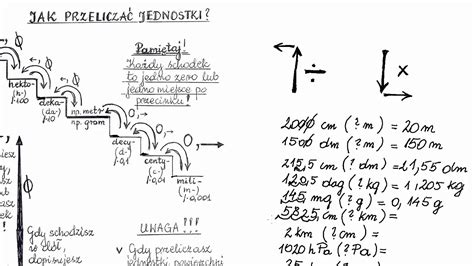 JAK PRZELICZAĆ JEDNOSTKI?
Pamiętaj!
Każdy schodek
to jedno zero lub
jedno miejsce po
przecinku!
hekto-
(h-)
1·100
deka-
(da-)
1·10
np. metr
np. gram
decy-
(d-)
1·0,1
centy-
(c-)
1·0,01
mili-
(m-)
1·0,001
0,
0,
Gdy schodzisz
w dół,
dopisujesz
UWAGA!!!
Gdy przeliczasz
jednostki powierzchni
÷
x
2000 cm (? m) = 20 m
1500 dm (? m) = 150 m
215,5 cm (? dm) = 21,55 dm
120,5 dag (? kg) = 1,205 kg
145 mg (? g) = 0,145 g
5825 cm (? km) =
2 km (? cm) =
1020 hPa (? Pa) =